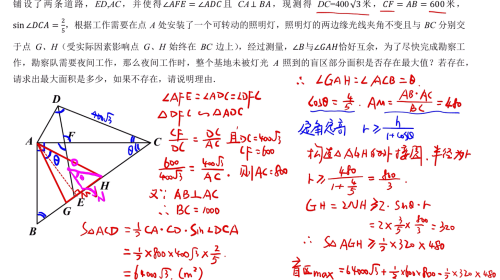 铺设了两条道路，ED,AC，并使得∠AFE=∠ADC 且 CA⊥BA，现测得 DC=400√3 米，CF = AB = 600 米，
sin∠DCA = 2/5．根据工作需要在点 A 处安装了一个可转动的照明灯，照明灯的两边缘光线夹角不变且与 BC 分别交
于点 G，H（受实际因素影响点 G，H 始终在 BC 边上），经过测量，∠B与∠GAH恰好互余，为了尽快完成勘察工
作，勘察队需要夜间工作，那么夜间工作时，整个基地未被灯光 A 照到的盲区部分面积是否存在最大值？若存在，
请求出最大面积是多少，如果不存在，请说明理由．
D
400√3
A
F
θ
C
θ
H
E
G
B
∠AFE=∠ADC=∠DFC
△DFC ∽ △ADC
CF/DC = DC/AC 且DC=400√3
CF=600
600/400√3 = 400√3/AC ∴AC=800
又∵ AB⊥AC
∴ BC=1000
S△ACD = 1/2 CA·CD·Sin∠DCA
= 1/2×800×400√3×2/5
= 64000√3 (m²)
∴ ∠GAH=∠ACB=θ
cosθ = 4/5. AM = AB·AC/BC = 480
定角定高 r≥ h/1+cosθ
构造△AGH的外接圆,半径为r
r≥ 480/1+4/5 = 800/3
GH = 2NH ≥ 2·sinθ·r
= 2×3/5×800/3 = 320
∴ S△AGH ≥ 1/2×320×480
S盲区max = 64000√3 + 1/2×600×800 - 1/2×320×480